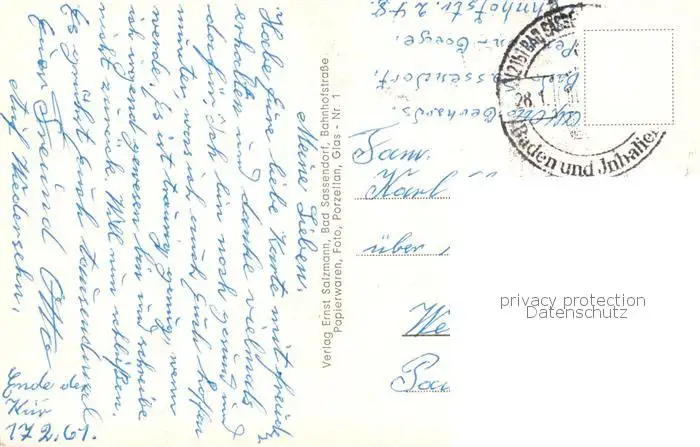 Meine Lieben,
Habe Eure liebe Karte mit Freude
erhalten und danke vielmals
dafür, ich bin noch gesund und
munter, was ich auch Euch hoffen
werde. Es ist traurig genug, wenn
ich irgend gewesen bin und schreibe
nicht zurück. Will nun schließen.
Es grüßt Euch tausendmal
Euer Freund Otto
Auf Wiedersehn,
Ende der
Kur
17.2.61.
Verlag Ernst Salzmann, Bad Sassendorf, Bahnhofstraße
Papierwaren, Foto, Porzellan, Glas - Nr. 1
Gerhards,
Bahnhofstr. 24g.
(21b) BAD SASSE
28.1.
Baden und Inhalie
Fam.
Karl
über
We
privacy protection
Datenschutz